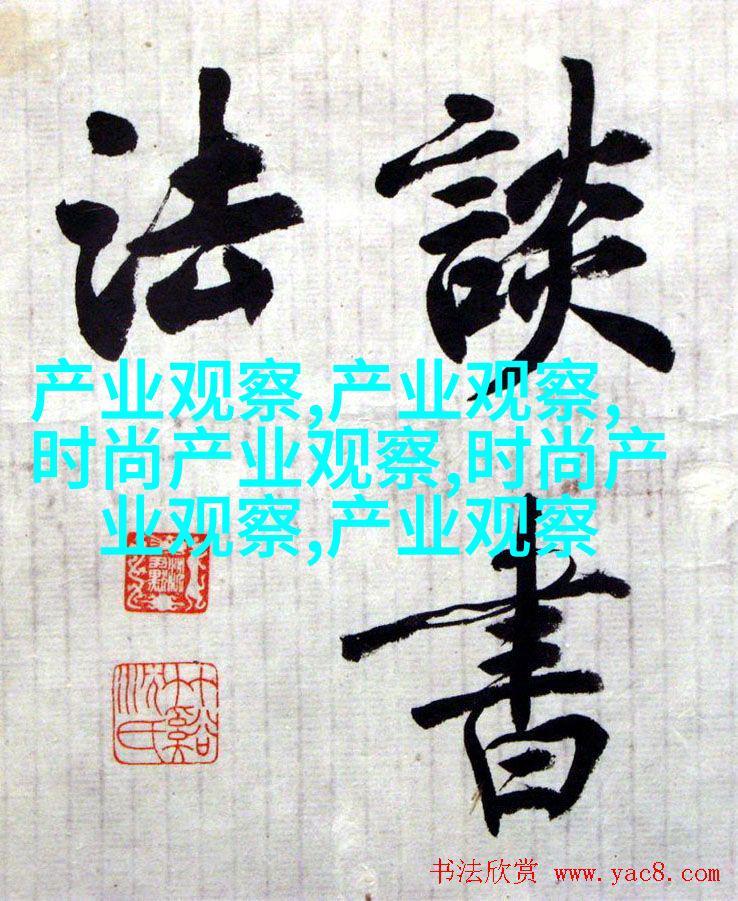 談書
法
产业观察,产业观察,
时尚产业观察,时尚产
业观察,产业观察
竹谿
沈氏
书法欣赏 www.yac8.com